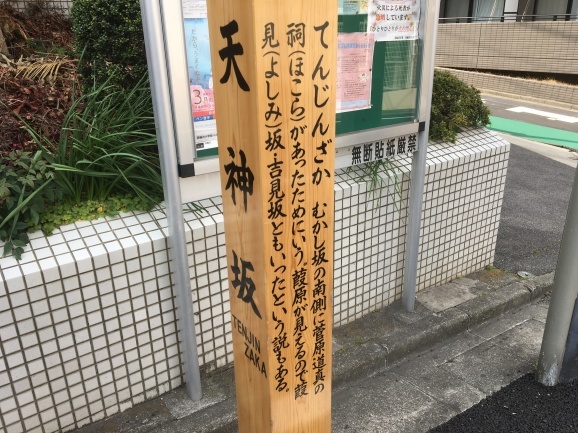 天神坂
TENJIN
ZAKA
てんじんざか　むかし坂の南側に菅原道真の
祠(ほこら)があったためにいう。葭原が見えるので葭
見(よしみ)坂・吉見坂ともいったという説もある。
無断貼紙厳禁